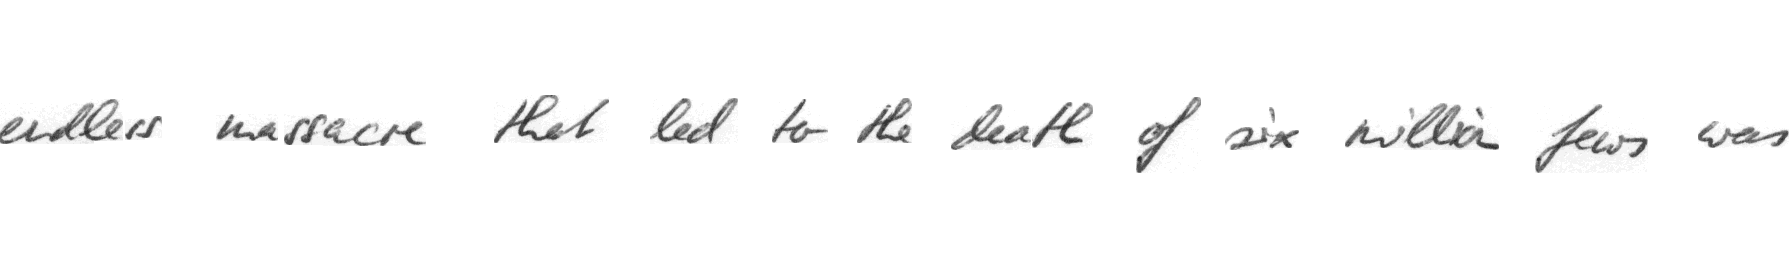 endless massacre that led to the death of six million Jews was